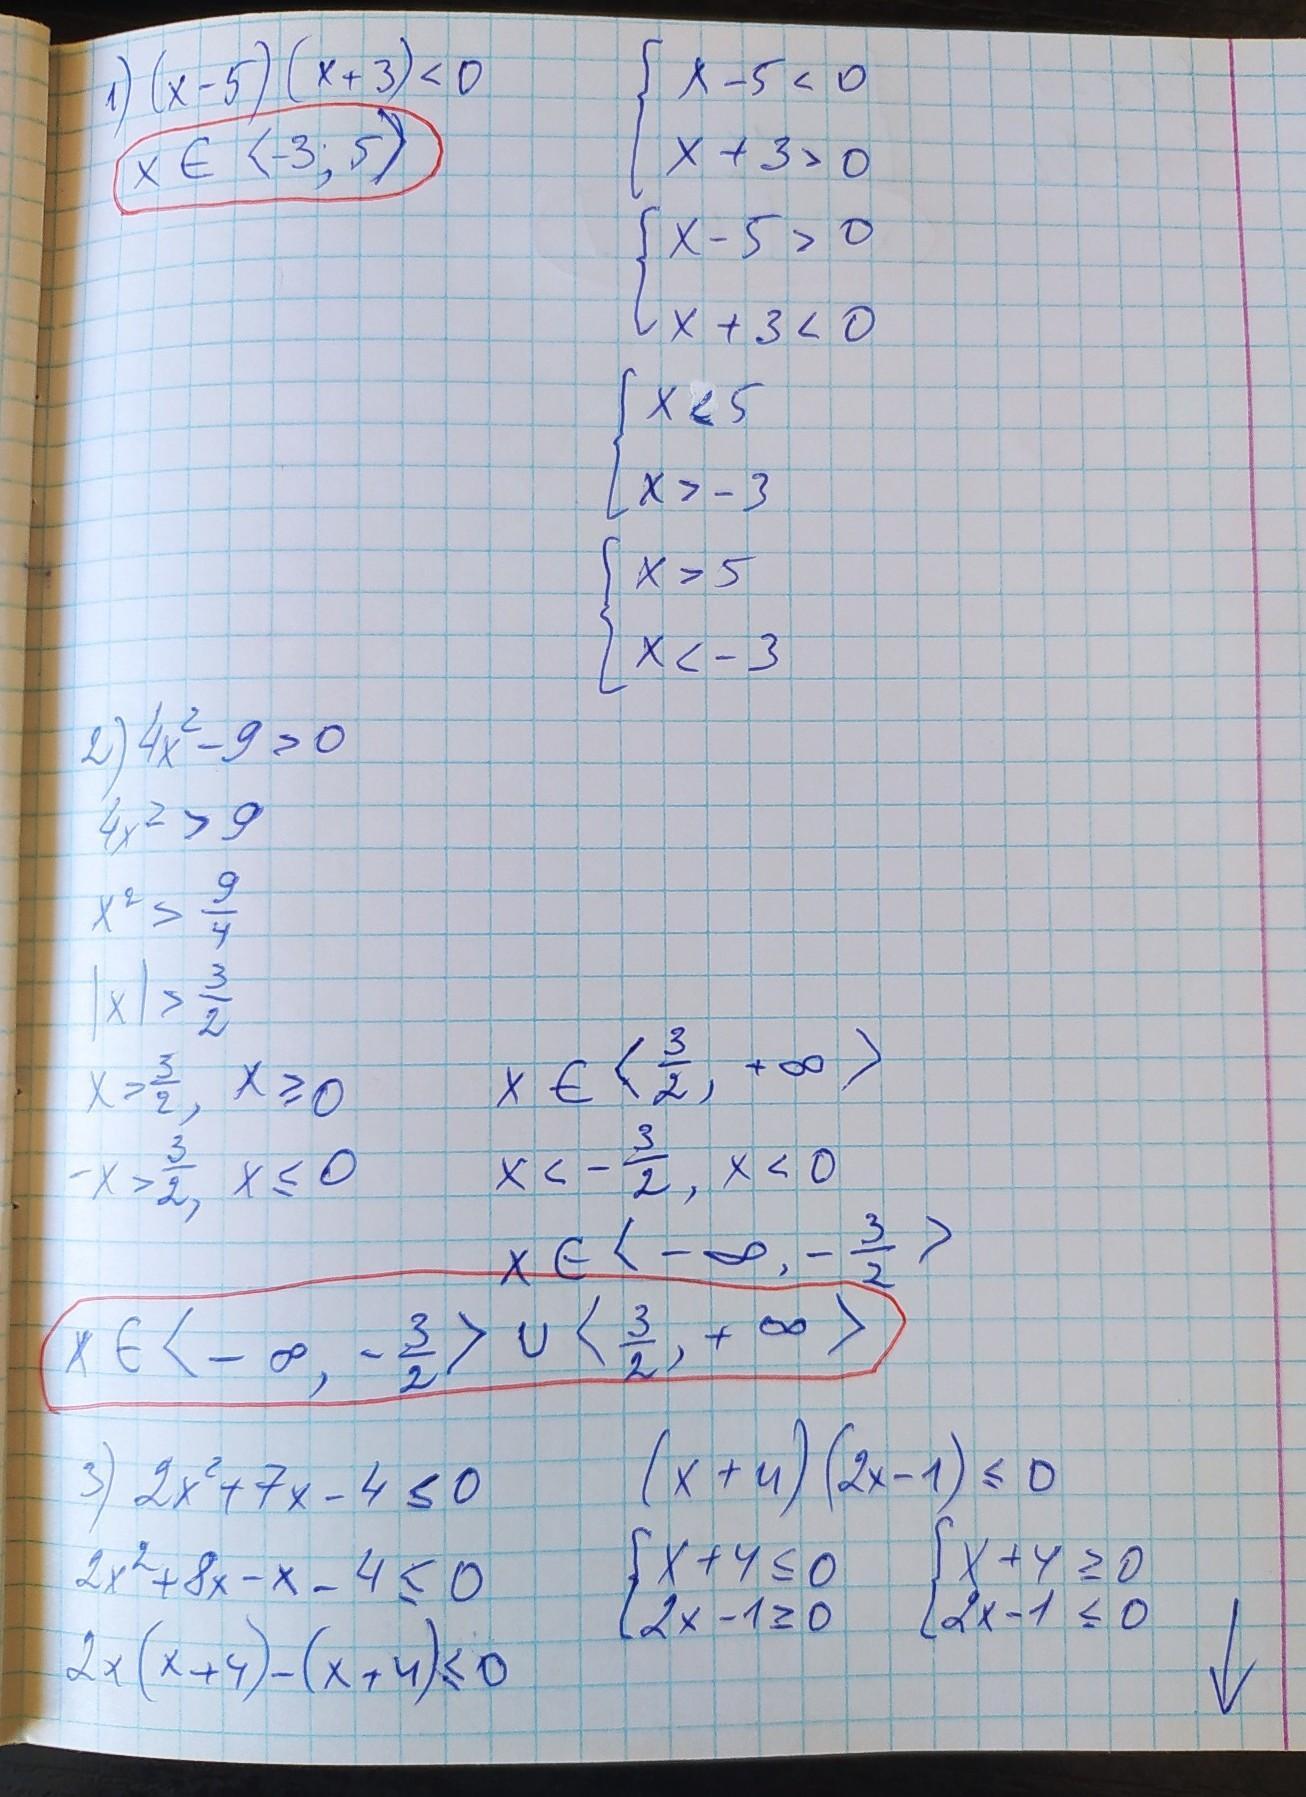 1) (x-5)(x+3)<0
x ∈ ⟨-3; 5⟩
{ x-5<0
x+3>0
{ x-5>0
x+3<0
{ x<5
x>-3
{ x>5
x<-3
2) 4x²-9>0
4x²>9
x²>9/4
|x|>3/2
x>3/2, x≥0
x ∈ ⟨3/2, +∞⟩
-x>3/2, x≤0
x<-3/2, x<0
x ∈ ⟨-∞, -3/2⟩
x ∈ ⟨-∞, -3/2⟩ ∪ ⟨3/2, +∞⟩
3) 2x²+7x-4≤0
2x²+8x-x-4≤0
2x(x+4)-(x+4)≤0
(x+4)(2x-1)≤0
{ x+4≤0
2x-1≥0
{ x+4≥0
2x-1≤0